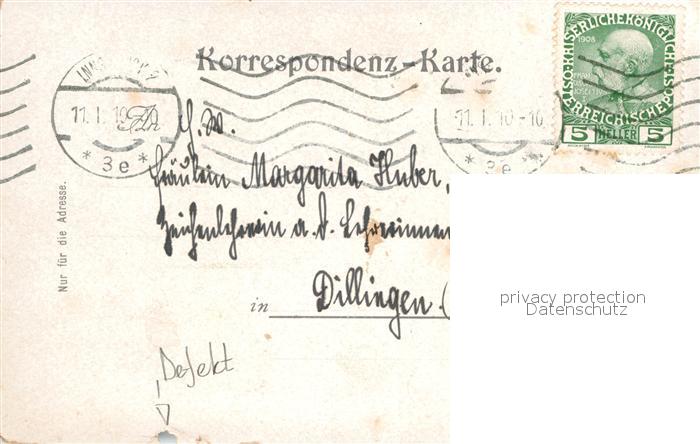 Korrespondenz-Karte.
11. I. 10
* 3e *
11. I. 10-10
* 3e *
1908
KAISERLICHE KÖNIGLICHE
ÖSTERREICHISCHE POST
5 HELLER 5
An
Fräulein Margarita Huber,
Zeichenlehrerin a. d. Lehrerinnen
in Dillingen (
Nur für die Adresse.
privacy protection
Datenschutz
Defekt